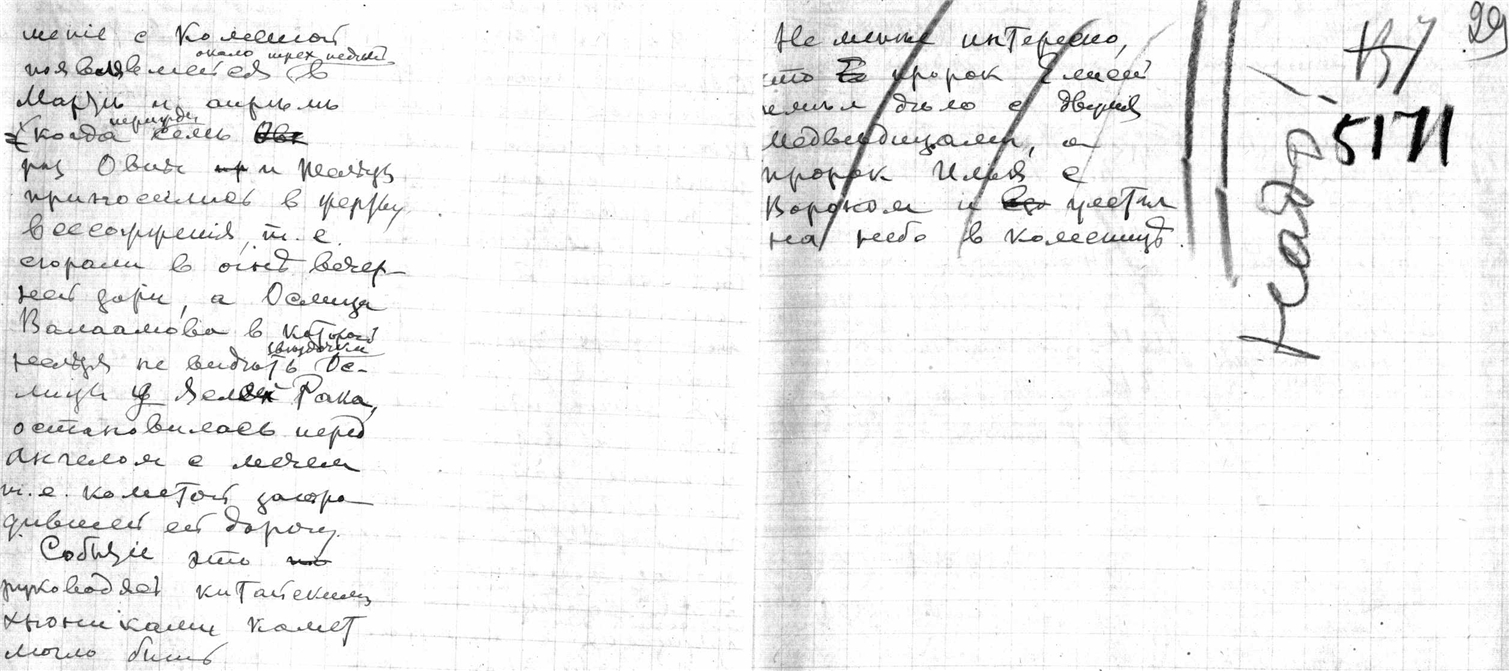 меніе с Кометой
около трех недель
появляемейся в
Марте и апреле
периоды
(когда семь
раз Овен и телец
приносились в жертву
всесожженія, т. е.
сгорали в огне вечер-
ней зари, а Ослица
Валаамова в которой
звездочки
нельзя не видеть Ос-
лицы Рака,
остановилась перед
ангелом с мечем
т. е. кометой загра-
дившей ей дорогу.
Событіе это
руководясь китайскими
хрониками комет
могло быть
Не менее интересно,
что пророк Елисей
имел дело с двумя
медведицами, а
пророк Илья с
Вороном и улетел
на небо в колеснице.
29
5171